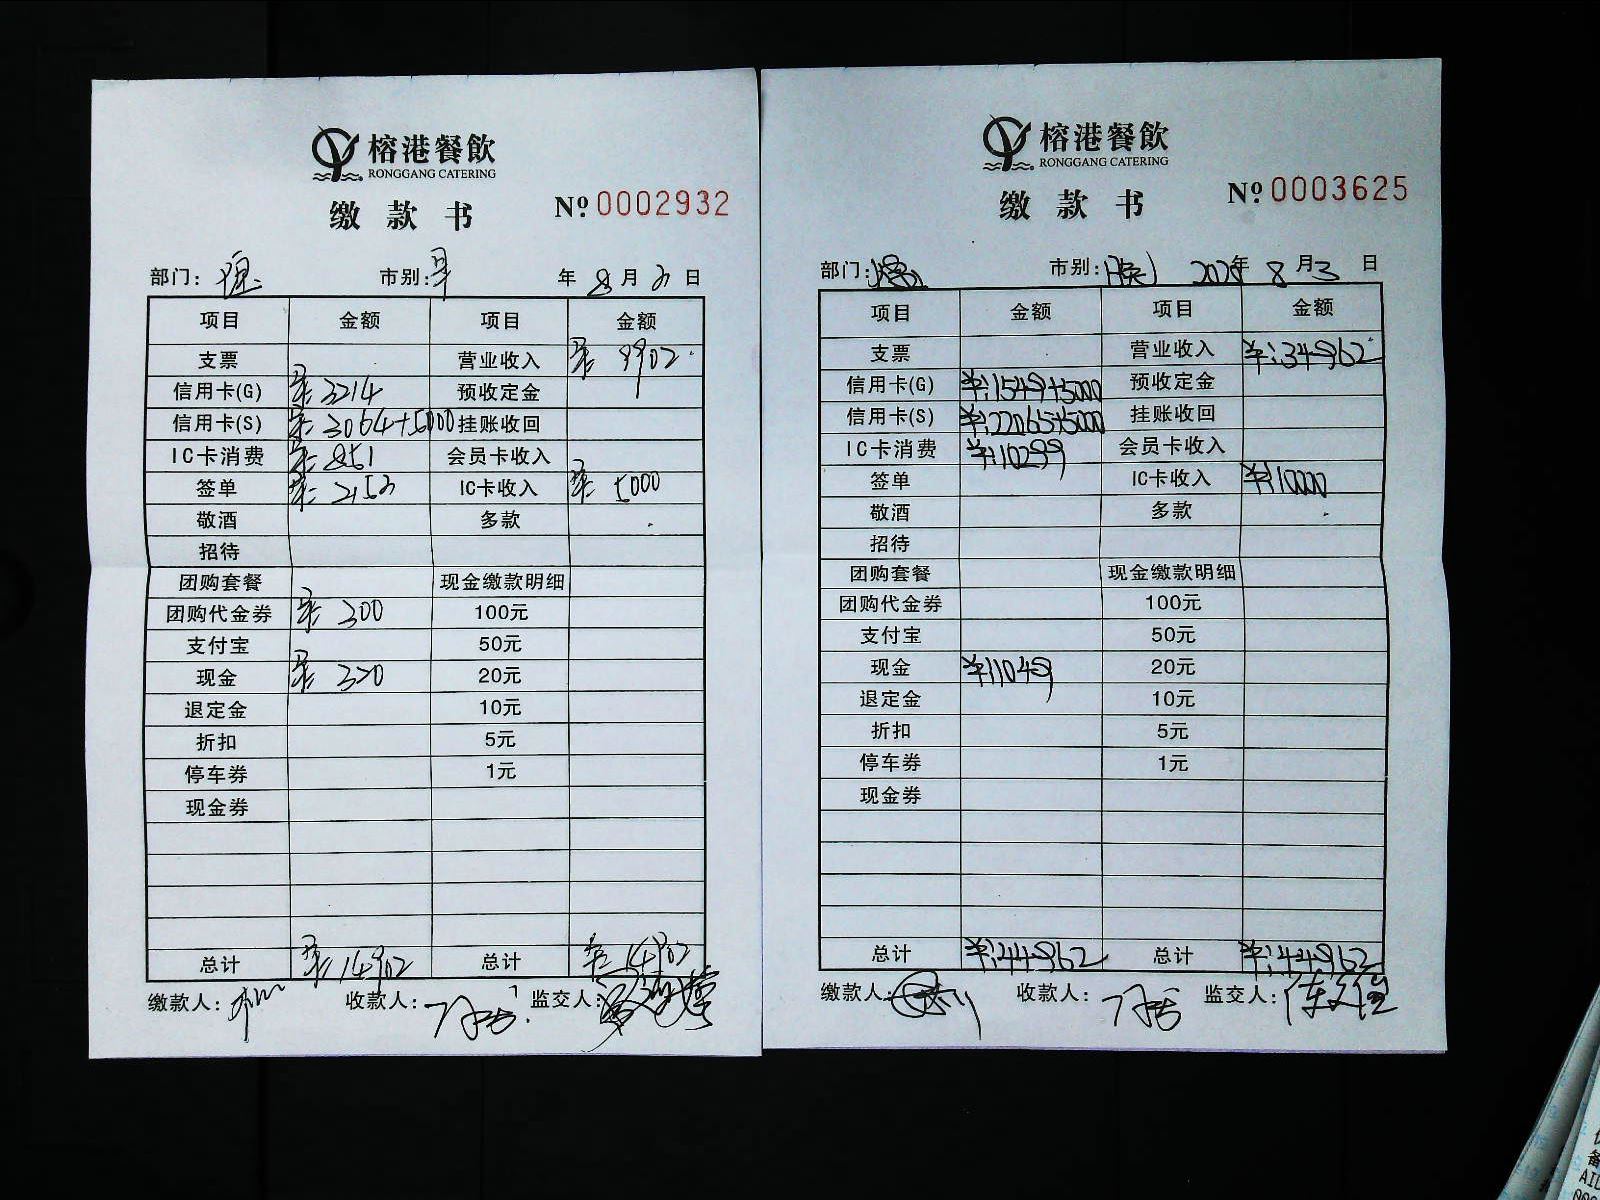 榕港餐飲
RONGGANG CATERING
缴款书
№ 0002932
部门: 市别: 年 8 月 3 日
项目 金额 项目 金额
支票 营业收入 ¥: 9902
信用卡(G) ¥: 3214 预收定金
信用卡(S) ¥: 3064+5000 挂账收回
IC卡消费 ¥: 851 会员卡收入
签单 ¥: 2153 IC卡收入 ¥: 5000
敬酒 多款
招待
团购套餐 现金缴款明细
团购代金券 ¥: 300 100元
支付宝 50元
现金 ¥: 320 20元
退定金 10元
折扣 5元
停车券 1元
现金券
总计 ¥: 14902 总计 ¥: 14902
缴款人: 收款人: 监交人:
榕港餐飲
RONGGANG CATERING
缴款书
№ 0003625
部门: 市别: 年 8 月 3 日
项目 金额 项目 金额
支票 营业收入 ¥:34962
信用卡(G) ¥:1549+5000 预收定金
信用卡(S) ¥:22065+5000 挂账收回
IC卡消费 ¥:10299 会员卡收入
签单 IC卡收入 ¥:10000
敬酒 多款
招待
团购套餐 现金缴款明细
团购代金券 100元
支付宝 50元
现金 ¥:11049 20元
退定金 10元
折扣 5元
停车券 1元
现金券
总计 ¥:44962 总计 ¥:44962
缴款人: 收款人: 监交人: